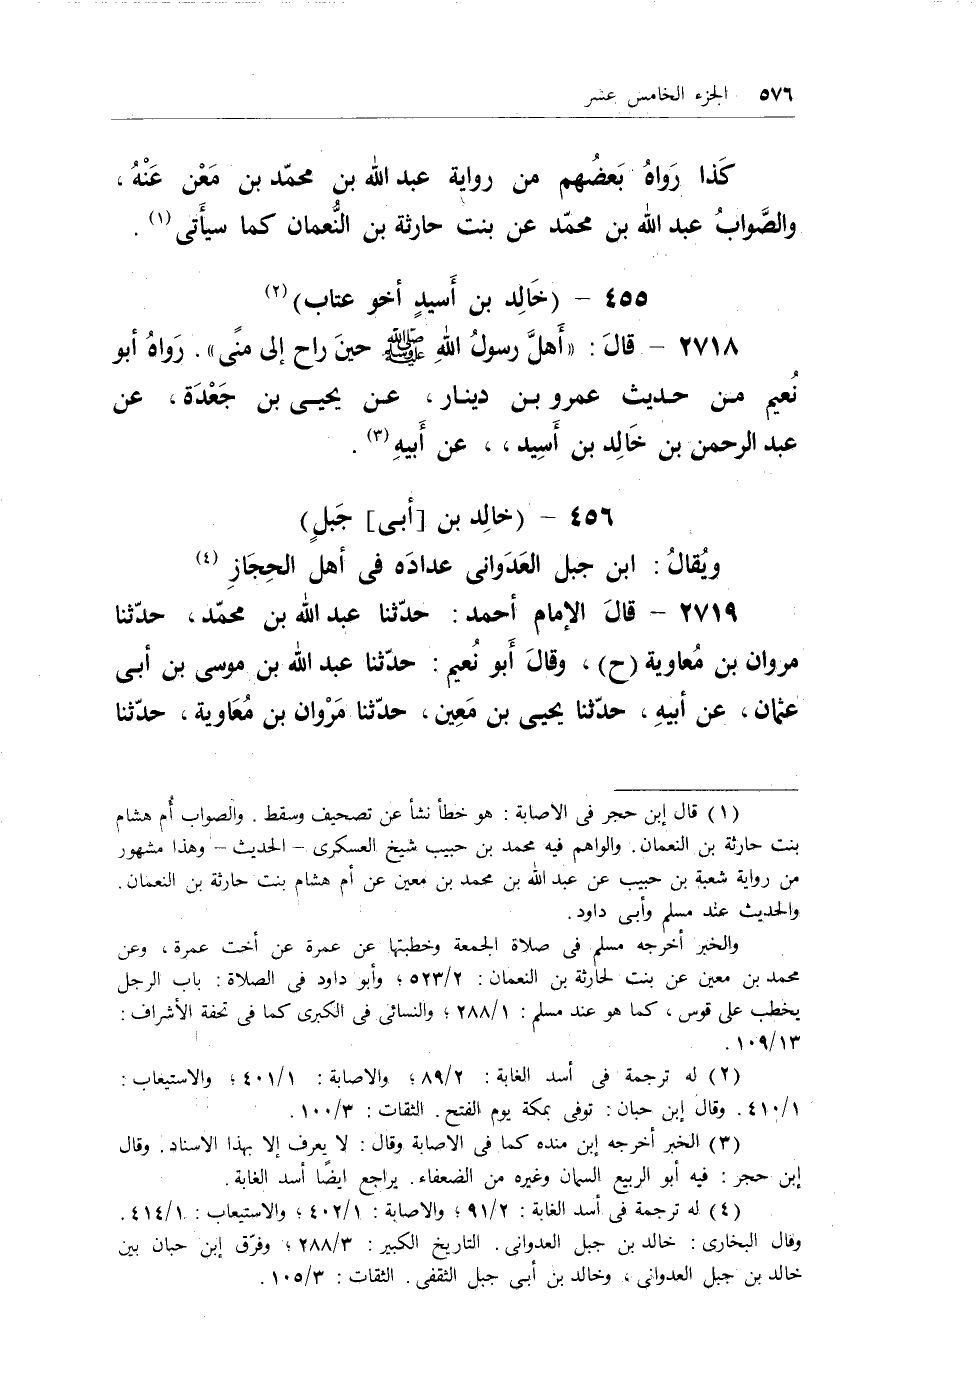 ٥٧٦ الجزء الخامس عشر
كَذا رَواهُ بَعضُهم من رواية عبد الله بن محمّد بن مَعْن عَنْهُ ،
والصَّوابُ عبد الله بن محمّد عن بنت حارثة بن النُّعمان كما سيأَتى (١) .
٤٥٥ – (خَالِد بن أَسيدٍ أخو عتاب) (٢)
٢٧١٨ – قالَ : «أَهلَّ رسولُ اللهِ ﷺ حينَ راح إلى منًى» . رَواهُ أبو
نُعيم من حديث عمرو بن دينار ، عن يحيى بن جَعْدَة ، عن
عبد الرحمن بن خَالِد بن أَسِيد ، ، عن أَبيهِ (٣) .
٤٥٦ – (خالِد بن [أبى] جَبلٍ)
ويُقالُ : ابن جبل العَدَوانى عدادَه فى أهل الحِجَازِ (٤)
٢٧١٩ – قالَ الإمام أحمد : حدّثنا عبد الله بن محمّد ، حدّثنا
مروان بن مُعاوية (ح) ، وقالَ أَبو نُعيم : حدّثنا عبد الله بن موسى بن أبى
عثمان ، عن أبيهِ ، حدّثنا يحيى بن مَعِين ، حدّثنا مَرْوان بن مُعَاوية ، حدّثنا
(١) قال إبن حجر فى الاصابة : هو خطأ نشأ عن تصحيف وسقط . والصواب أُم هشام
بنت حارثة بن النعمان . والواهم فيه محمد بن حبيب شيخ العسكرى – الحديث – وهذا مشهور
من رواية شعبة بن حبيب عن عبد الله بن محمد بن معين عن أم هشام بنت حارثة بن النعمان .
والحديث عند مسلم وأبى داود .
والخبر أخرجه مسلم فى صلاة الجمعة وخطبتها عن عمرة عن أخت عمرة ، وعن
محمد بن معين عن بنت لحارثة بن النعمان : ٥٢٣/٢ ؛ وأبو داود فى الصلاة : باب الرجل
يخطب على قوس ، كما هو عند مسلم : ٢٨٨/١ ؛ والنسائى فى الكبرى كما فى تحفة الأشراف :
١٠٩/١٣ .
(٢) له ترجمة فى أسد الغابة : ٨٩/٢ ؛ والاصابة : ٤٠١/١ ؛ والاستيعاب :
٤١٠/١ . وقال إبن حبان : توفى بمكة يوم الفتح . الثقات : ١٠٠/٣ .
(٣) الخبر أخرجه إبن منده كما فى الاصابة وقال : لا يعرف إلا بهذا الاسناد . وقال
إبن حجر : فيه أبو الربيع السمان وغيره من الضعفاء . يراجع ايضًا أسد الغابة .
(٤) له ترجمة فى أسد الغابة : ٩١/٢ ؛ والاصابة : ٤٠٢/١ ؛ والاستيعاب : ٤١٤/١ .
وقال البخارى : خالد بن جبل العدوانى . التاريخ الكبير : ٢٨٨/٣ ؛ وفرّق إبن حبان بين
خالد بن جبل العدوانى ، وخالد بن أبى جبل الثقفى . الثقات : ١٠٥/٣ .